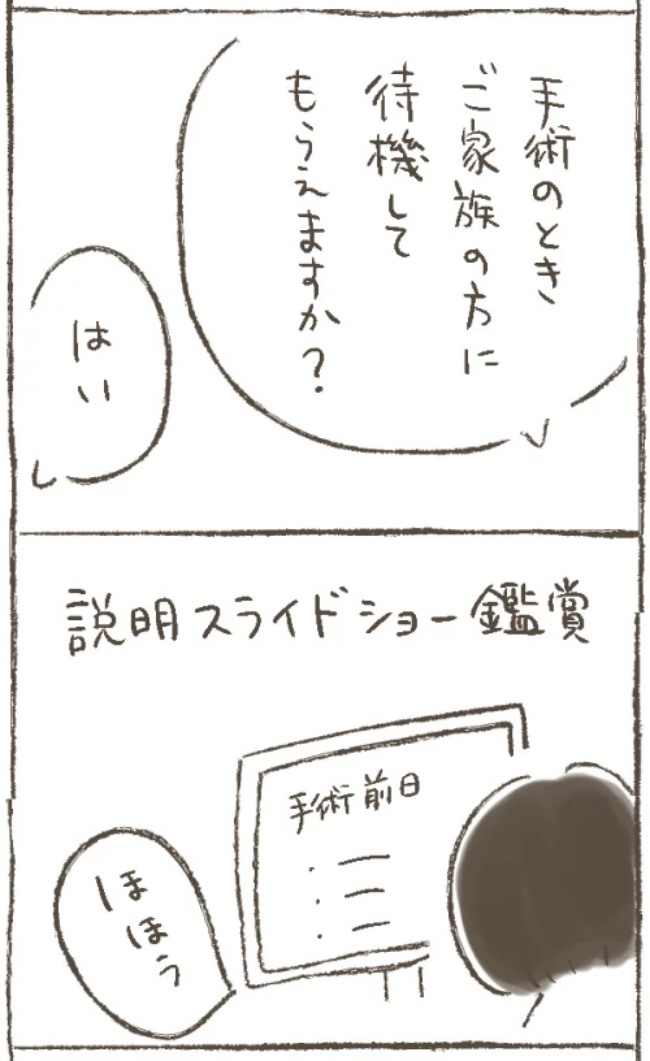 手術のとき
ご家族の方に
待機して
もらえますか？
はい
説明スライドショー鑑賞
手術前日
ほほう